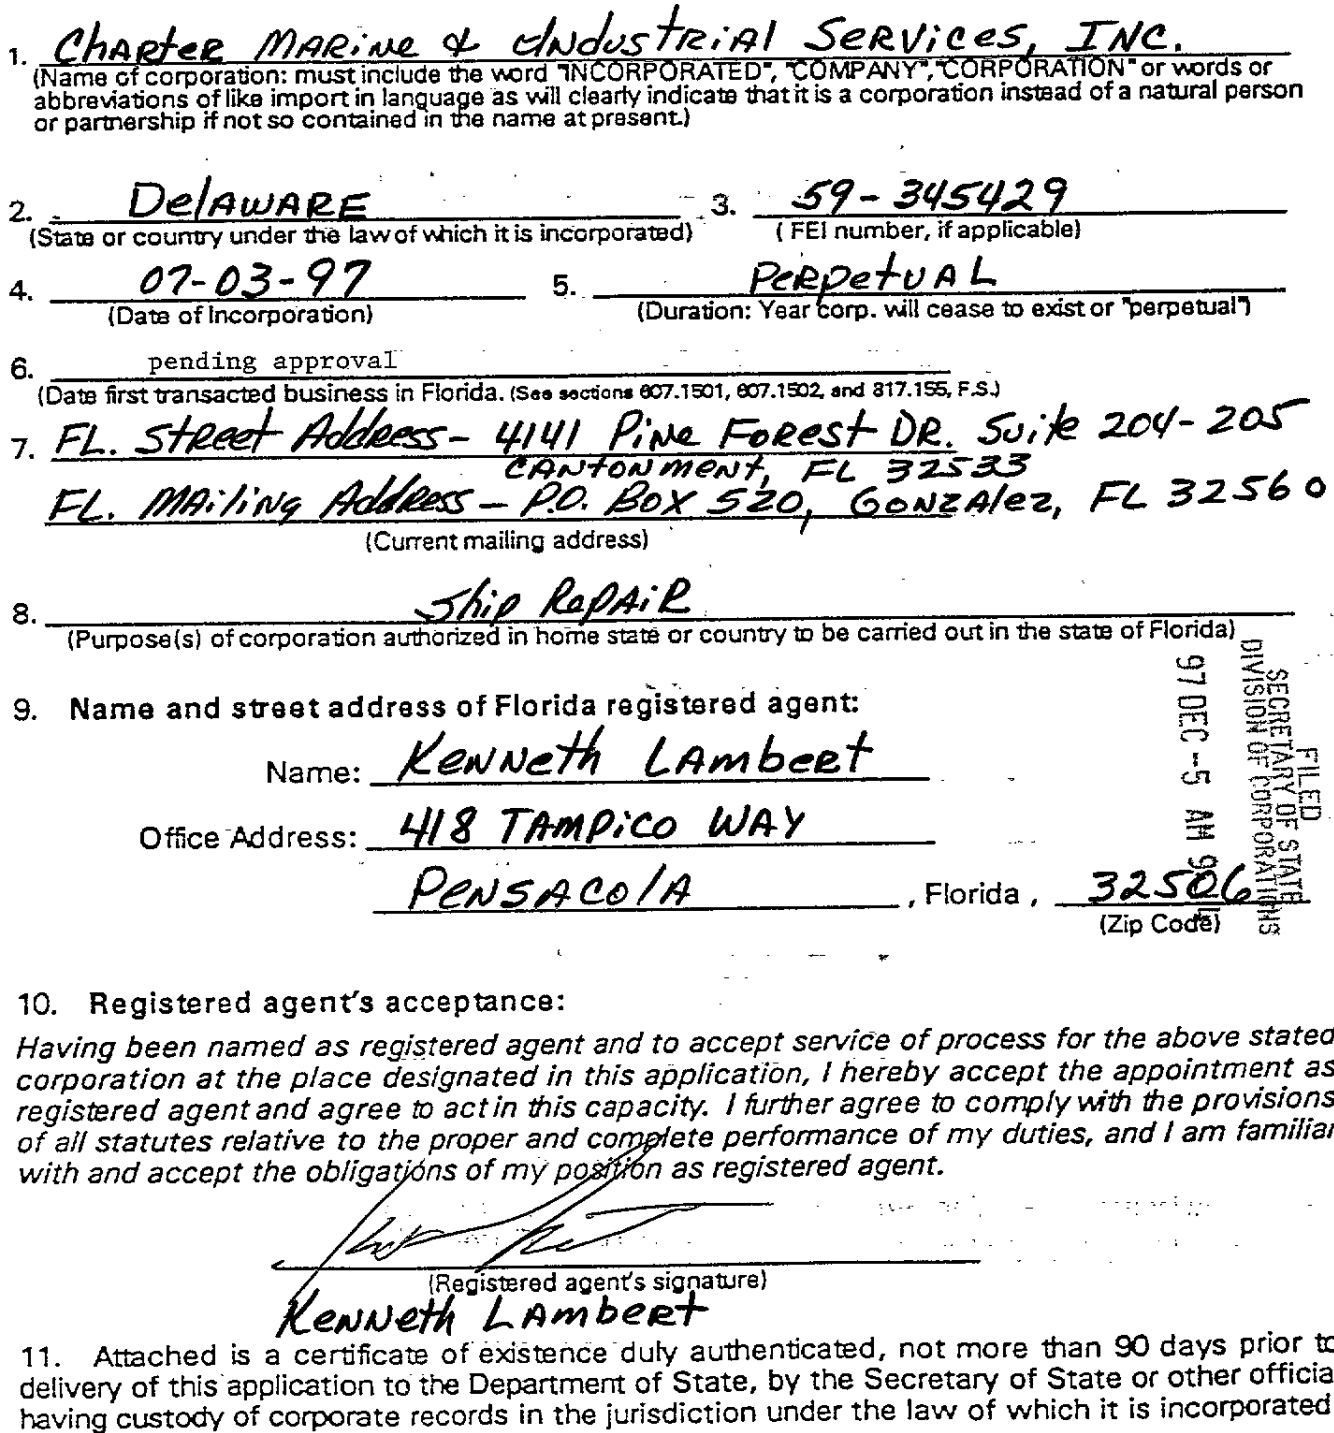 1. Charter Marine & Industrial Services, INC.
(Name of corporation: must include the word "INCORPORATED", "COMPANY", "CORPORATION" or words or
abbreviations of like import in language as will clearly indicate that it is a corporation instead of a natural person
or partnership if not so contained in the name at present.)
2. Delaware 3. 59-345429
(State or country under the law of which it is incorporated) (FEI number, if applicable)
4. 07-03-97 5. Perpetual
(Date of Incorporation) (Duration: Year corp. will cease to exist or "perpetual")
6. pending approval
(Date first transacted business in Florida. (See sections 607.1501, 607.1502, and 817.155, F.S.)
7. FL. Street Address- 4141 Pine Forest DR. Suite 204-205
Cantonment, FL 32533
FL. Mailing Address - P.O. Box 520, Gonzalez, FL 32560
(Current mailing address)
8. Ship Repair
(Purpose(s) of corporation authorized in home state or country to be carried out in the state of Florida)
FILED
SECRETARY OF STATE
DIVISION OF CORPORATIONS
97 DEC -5 AM 9
9. Name and street address of Florida registered agent:
Name: Kenneth Lambert
Office Address: 418 Tampico Way
Pensacola, Florida, 32506
(Zip Code)
10. Registered agent's acceptance:
Having been named as registered agent and to accept service of process for the above stated
corporation at the place designated in this application, I hereby accept the appointment as
registered agent and agree to act in this capacity. I further agree to comply with the provisions
of all statutes relative to the proper and complete performance of my duties, and I am familiar
with and accept the obligations of my position as registered agent.
(Registered agent's signature)
Kenneth Lambert
11. Attached is a certificate of existence duly authenticated, not more than 90 days prior to
delivery of this application to the Department of State, by the Secretary of State or other official
having custody of corporate records in the jurisdiction under the law of which it is incorporated